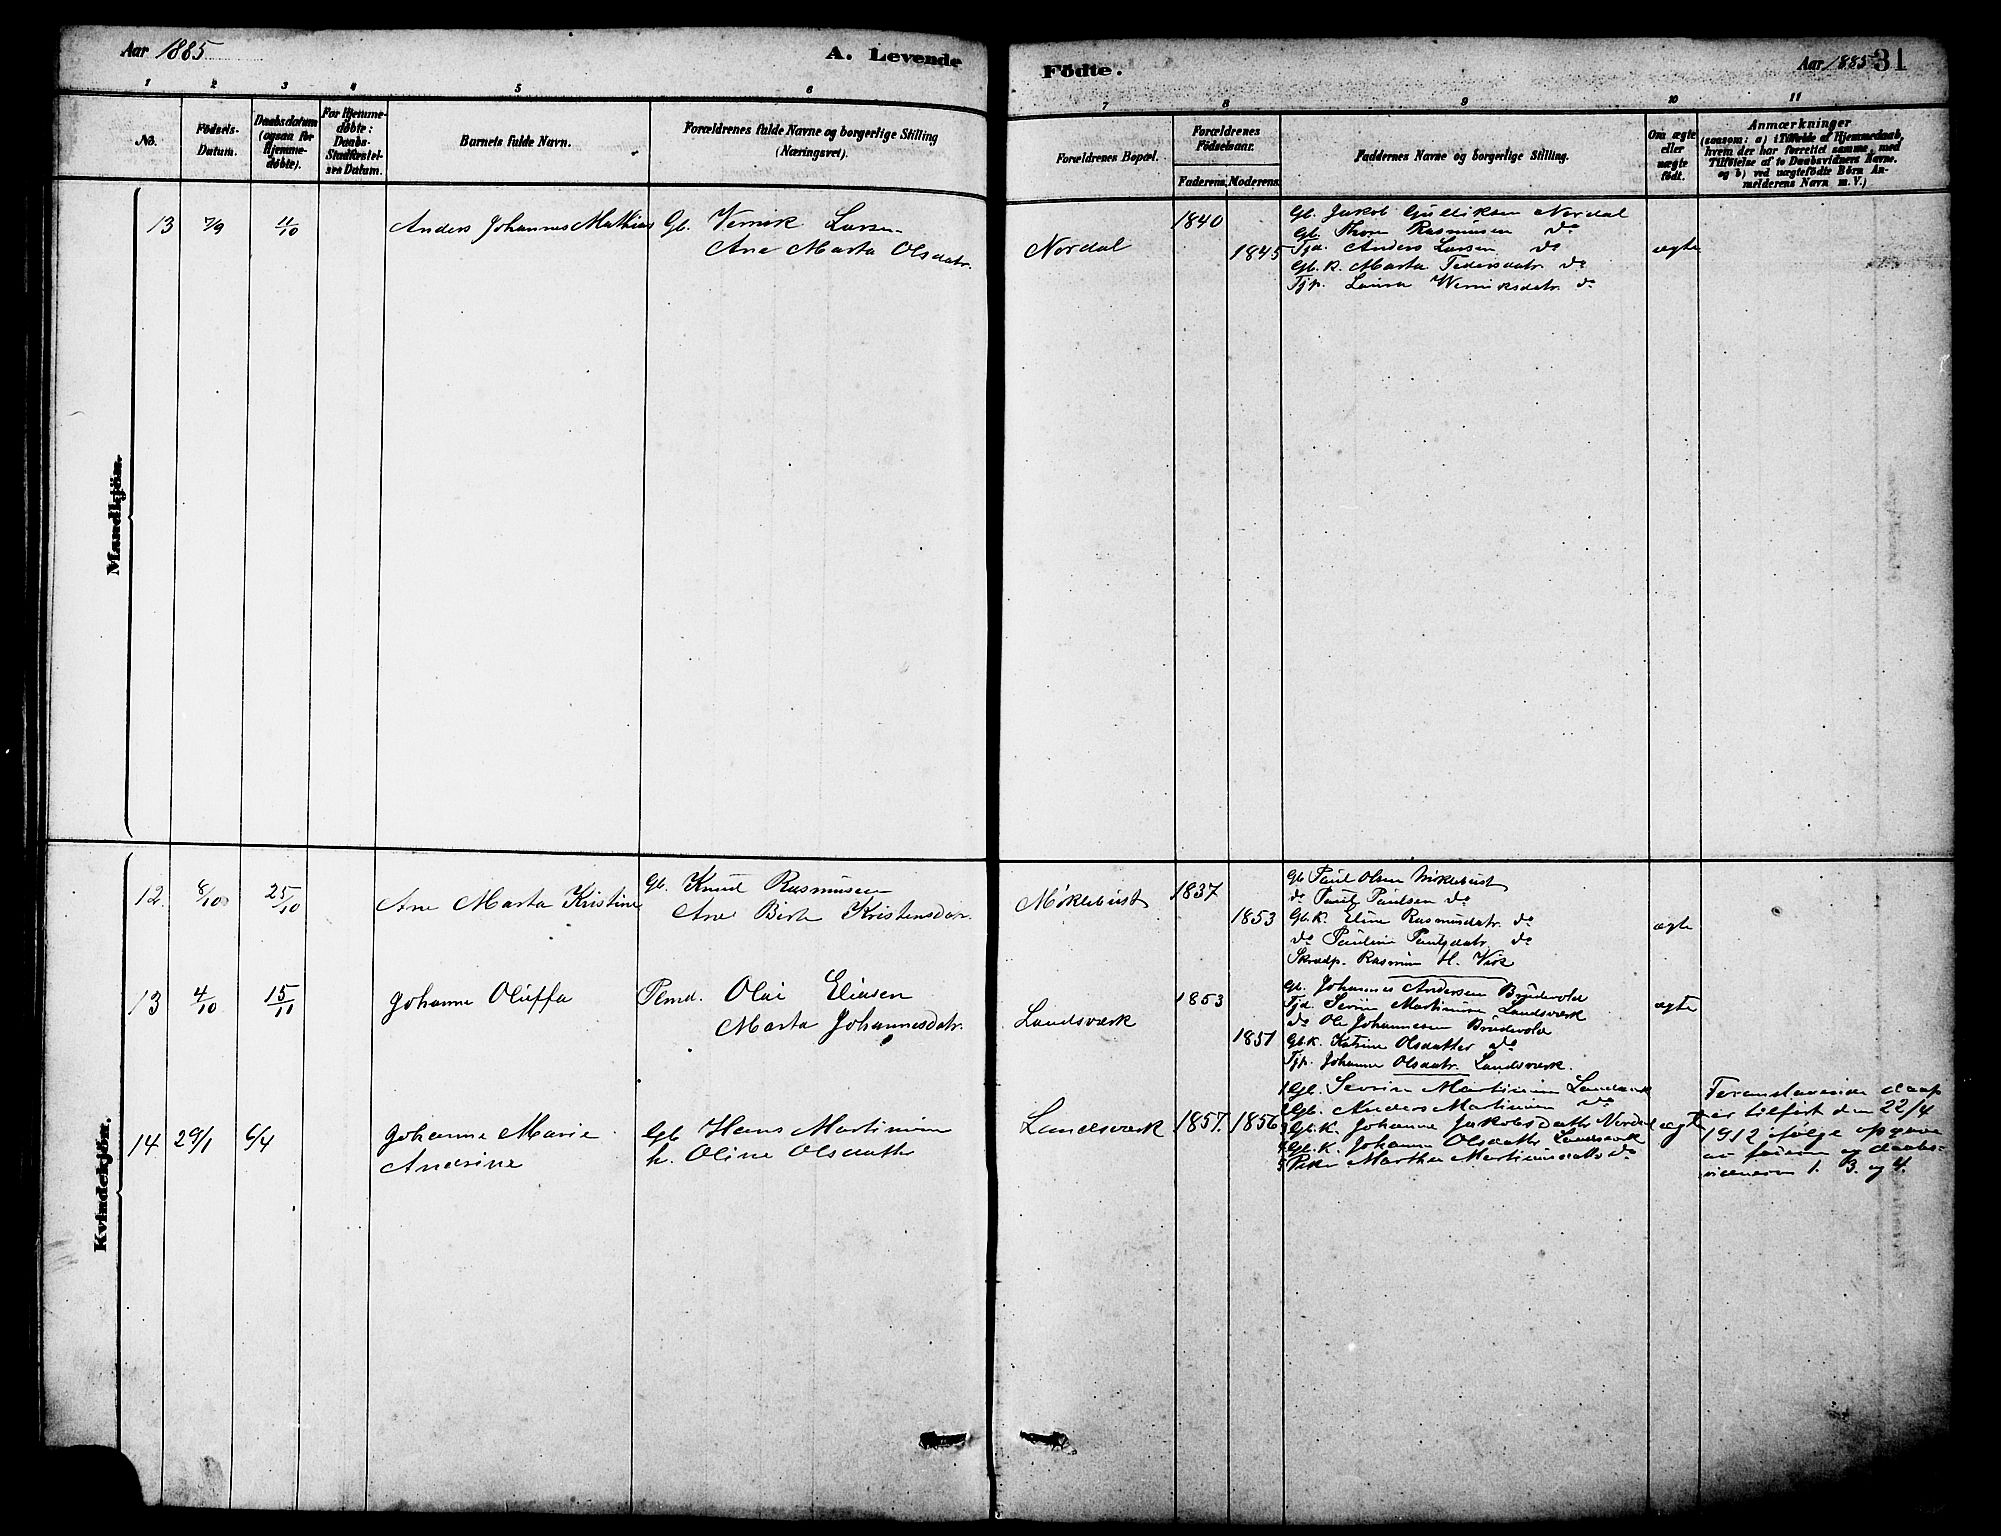 Aar 1885
A. Levende
Födte.
Aar 1885
31
1 2 3 4 5 6 7 8 9 10 11
No.
Fødsels-
Datum.
Daabsdatum
(ogsaa for
Hjemme-
døbte).
For Hjemme-
døbte:
Daabs-
Stadfæstel-
ses Datum.
Barnets fulde Navn.
Forældrenes fulde Navne og borgerlige Stilling
(Næringsvei).
Forældrenes Bopæl.
Forældrenes
Fødselsaar.
Faderens. Moderens.
Faddernes Navne og borgerlige Stilling.
Om ægte
eller
uægte
født.
Anmærkninger
(saasom: a) i Tilfælde af Hjemmedaab,
hvem der har forrettet samme, med
Tilføielse af to Daabsvidners Navne,
og b) ved uægtefødte Børn An-
melderens Navn m. V.)
Mandkjön.
13 7/9 4/10 Anders Johannes Mathias
Gb. Larsen
Ane Marta Olsdatr.
Nordal
1840
1845
Gb. Jakob Gulliksen Nordal
Gb. Thore Rasmussen do
Tjd. Anders Larsen do
Gb. K. Marta Pedersdatr. do
Tjp. Laura do
ægte
Kvindekjön.
12. 8/10 25/10 Ane Marta Kristine
Gb. Knud Rasmussen
Ane Birte Kristensdatr.
Møklebust
1837
1853
Gb Paul Olsen Møklebust
do Paul Paulsen do
Gb. K. Eline Rasmusdatr. do
do Pauline Paulsdatr. do
Rasmus H. Vik
ægte
13 4/10 15/11 Johanne Oluffa
Plmd. Olai Eliasen
Marta Johannesdatr.
Landsværk
1853
1851
Gb. Johannes Andersen Brudevold
Tjd. Sevrin Martinusen Landsværk
do Ole Johannesen Brudevold
Gb.K. Katrine Olsdatter do
Tjp. Johanne Olsdatr. Landsværk.
ægte
14 29/1 6/4 Johanne Marie
Andrine
Gb Hans Martinusen
h. Oline Olsdatter
Landsværk 1857. 1856
1 Gb. Sevrin Martinusen Landsværk
2 Gb. Anders Martinusen do
3 Gb.K. Johanne Jakobsdatter Nordal
4 Gb.K. Johanne Olsdatter Landsværk
5 Pike Marthe Martinusdatter do
ægte
Foranstaaende daap
er tilført den 22/4
1912 ifølge opgave
av faren og daabs-
vidnerne 1. 3. og 4.